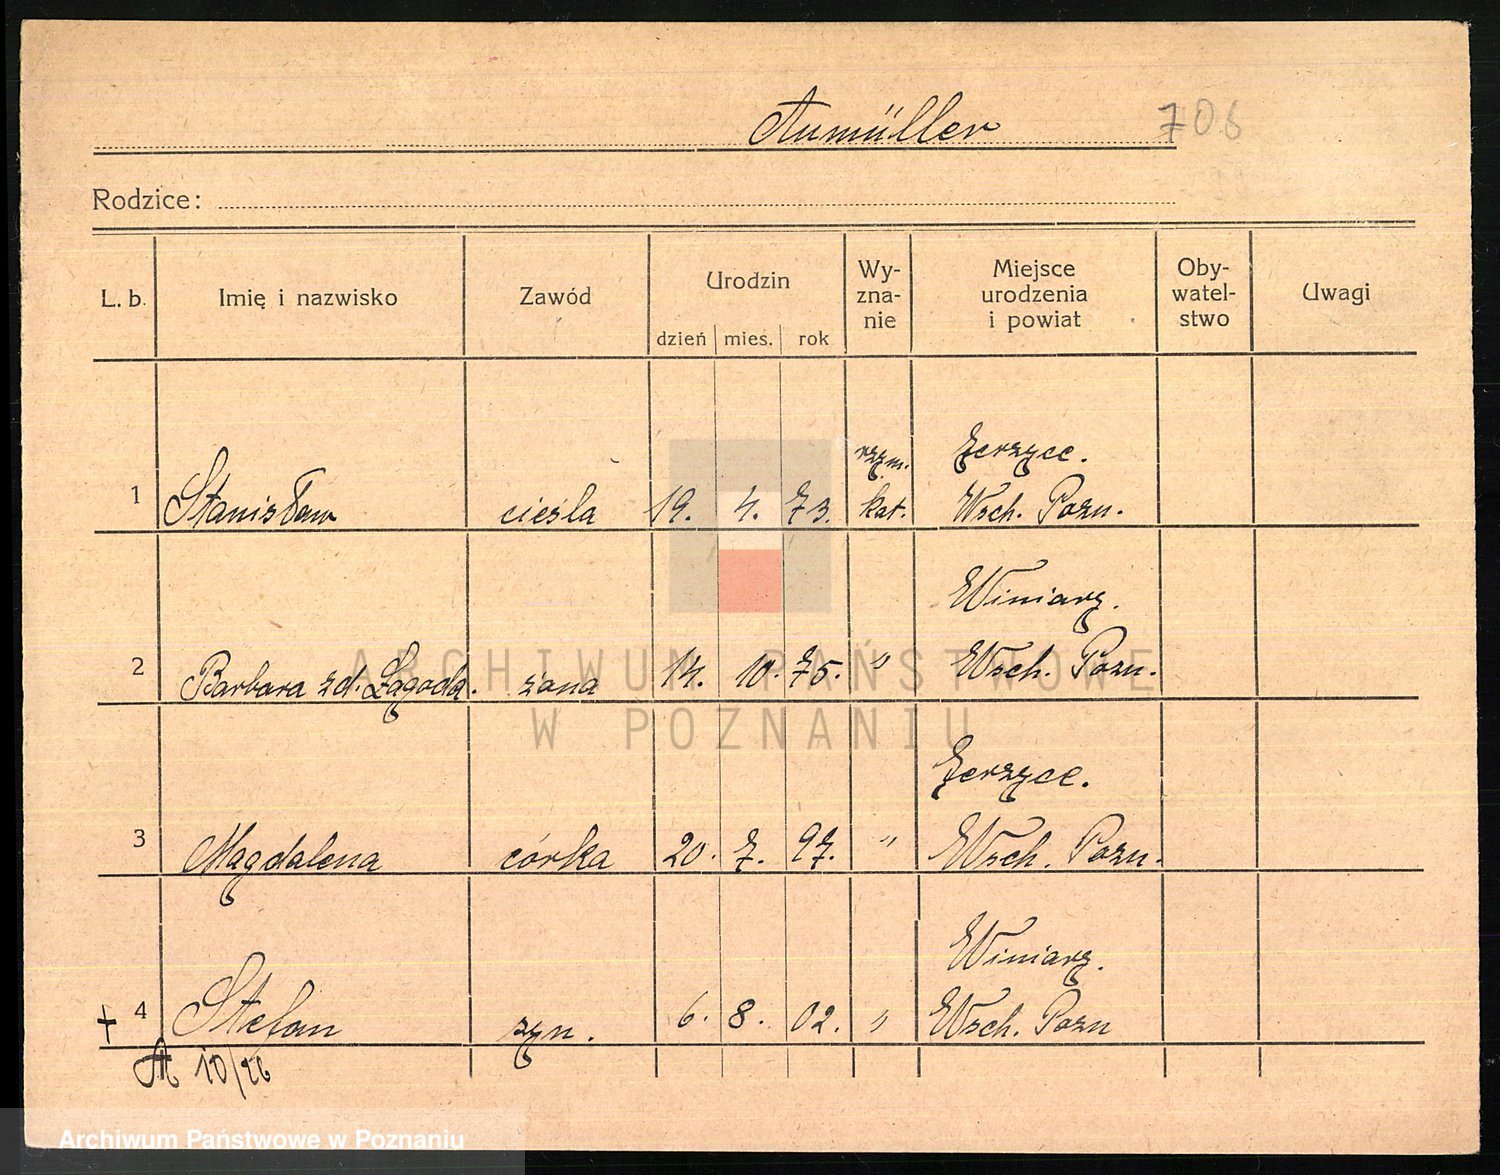 Aumüller 706
Rodzice:
L. b. Imię i nazwisko Zawód Urodzin dzień mies. rok Wy-zna-nie Miejsce urodzenia i powiat Oby-watel-stwo Uwagi
rzym. Jerzyce.
1 Stanisław cieśla 19. 4. 73. kat. Wsch. Pozn.
Winiarz.
2 Barbara zd. Łagoda. żona 14. 10. 75. " Wsch. Pozn.
Jerzyce.
3 Magdalena córka 20. 7. 97. " Wsch. Pozn.
Winiarz.
+ 4 Stefan syn. 6. 8. 02. " Wsch. Pozn
A 10/26
ARCHIWUM PAŃSTWOWE
W POZNANIU
Archiwum Państwowe w Poznaniu